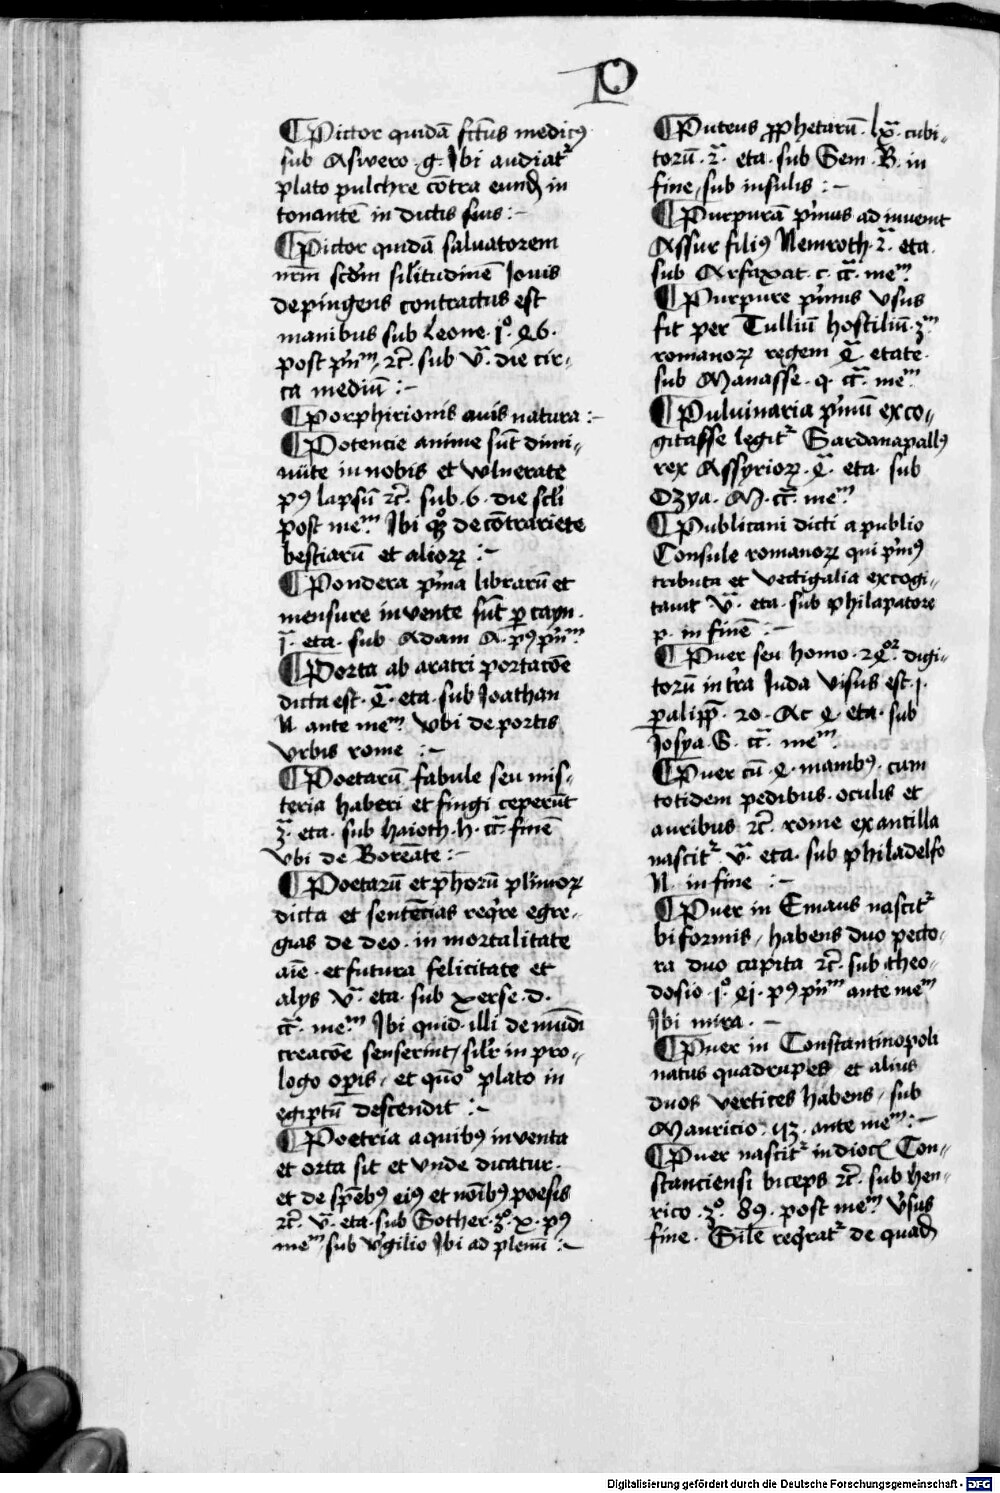 P
¶ Pictor quidā fctūs medicꝰ
sub Aswero · g · Ibi audiatʳ
plato pulchre cōtra eundͫ in
tonantē in dictis suis :-
¶ Pictor quidā saluatorem
nrm̄ scdm̄ silitudinē Iouis
depingens contractus est
manibus sub Leone · 1º · 46 ·
post pn̄m · ⁊c̄ · sub v̄ · die cir-
ca mediū :-
¶ Porphirionis auis natura :-
¶ Potencie anime sūt dimi-
nūte in nobis et wlnerate
pꝰ lapsū ⁊c̄ · sub · 6 · die scl̄i
post meᵐ Ibi qͣ de cōtrariete
bestiarū et alioꝝ :-
¶ Pondera pͥma librarū et
mensure invente sūt ꝑ cayn ·
ī · eta · sub Adam A · pꝰ pn̄m
¶ Porta ab aratri portacōe
dicta est · 4̄ · eta · sub Ioathan
N · ante meᵐ vbi de portis
vrbis rome :-
¶ Poetarū fabule seu mis-
teria haberi et fingi ceperūt
3̄ · eta · sub haioth · h · cͣ · finē
vbi de Boreāte :-
¶ Poetarū et ph̄orū pl̄imoꝝ
dicta et sentēcias reqͥre egre-
gias de deo · in mortalitate
aīe · et futura felicitate et
alys v̄ · eta · sub xerse · d ·
cͣ · meᵐ Ibi quid · illi de mūdi
creacōe senserint / silr̄ in pro-
logo oꝑis / et quōº plato in
egiptū descendit :-
¶ Poetria a quibꝰ inventa
et orta sit et vnde dicatur ·
et de spēbꝰ eiꝰ et noībꝰ poesis
⁊c̄ · v̄ · eta · sub Sother · 3º · x · pꝰ
meᵐ / sub vͥgilio Ibi ad plenū :-
¶ Puteus ꝓphetarū · lxͣ · cubi-
torū · 2̄ · eta · sub Sem · B · in
fine / sub insulis :-
¶ Purpurā pͥmus ad invenit
Assur filiꝰ Nemroth · 2̄ · eta ·
sub Arfaxat · c · cͣ · meᵐ
¶ Purpure pͥmus vsus
fit per Tulliū hostiliū · 3ᵐ
romanoꝝ regem 4̄ etate ·
sub Manasse · q · cͣ · meᵐ
¶ Puluinaria pͥmū exco-
gitasse legitʳ Sardanapallꝰ
rex Assyrioꝝ · 4̄ · eta · sub
Ozya · M · cͣ · meᵐ
¶ Publicani dicti a publio
Consule romanoꝝ qui pͥmꝰ
tributa et vectigalia excogi-
tauit v̄ · eta · sub philapatore
p · in finē :-
¶ Puer seu homo · 24ᵒʳ · digi-
torū in tr̄a Iuda visus est · 1 ·
ꝑalipp̄ · 20 · Ac 4 · eta · sub
Iosya · S · cͣ · meᵐ
¶ Puer cū · 4 · manibꝰ · cum
totidem pedibus · oculis et
auribus ⁊c̄ · rome ex ancilla
nascitʳ v̄ · eta · sub philadelfo
N · in fine :-
¶ Puer in Emaus nascitʳ
biformis / habens duo pecto-
ra duo capita ⁊c̄ · sub theo-
dosio · 1º · 41 · pꝰ pn̄m ante meᵐ
Ibi mira · -
¶ Puer in Constantinopoli
natus quadrupes et alius
duos vertices habens / sub
Mauricio · ante meᵐ :-
¶ Puer nascitʳ in dioc̄ Con-
stanciensi biceps ⁊c̄ · sub hen-
rico · 3º · 89 · post meᵐ vͥsus
fine · Sile reqͥratʳ de quadͫ
Digitalisierung gefördert durch die Deutsche Forschungsgemeinschaft - DFG